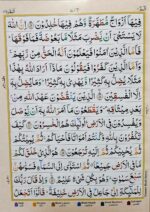 فِيْهَاۤ اَزْوَاجٌ مُّطَهَّرَةٌ وَّهُمْ فِيْهَا خٰلِدُوْنَ اِنَّ
اللّٰهَ لَا يَسْتَحْيٖۤ اَنْ يَّضْرِبَ مَثَلًا مَّا بَعُوْضَةً فَمَا فَوْقَهَا
فَاَمَّا الَّذِيْنَ اٰمَنُوْا فَيَعْلَمُوْنَ اَنَّهُ الْحَقُّ مِنْ رَّبِّهِمْ
وَاَمَّا الَّذِيْنَ كَفَرُوْا فَيَقُوْلُوْنَ مَاذَاۤ اَرَادَ اللّٰهُ بِهٰذَا
مَثَلًا يُضِلُّ بِهٖ كَثِيْرًا وَّيَهْدِيْ بِهٖ كَثِيْرًا وَمَا يُضِلُّ
بِهٖۤ اِلَّا الْفٰسِقِيْنَ الَّذِيْنَ يَنْقُضُوْنَ عَهْدَ اللّٰهِ مِنْۢ
بَعْدِ مِيْثَاقِهٖ وَيَقْطَعُوْنَ مَاۤ اَمَرَ اللّٰهُ بِهٖۤ اَنْ يُّوْصَلَ
وَيُفْسِدُوْنَ فِي الْاَرْضِ اُولٰٓئِكَ هُمُ الْخٰسِرُوْنَ كَيْفَ
تَكْفُرُوْنَ بِاللّٰهِ وَكُنْتُمْ اَمْوَاتًا فَاَحْيَاكُمْ ثُمَّ يُمِيْتُكُمْ
ثُمَّ يُحْيِيْكُمْ ثُمَّ اِلَيْهِ تُرْجَعُوْنَ هُوَ الَّذِيْ خَلَقَ لَكُمْ
مَّا فِي الْاَرْضِ جَمِيْعًا ثُمَّ اسْتَوٰۤى اِلَى السَّمَآءِ فَسَوّٰىهُنَّ
سَبْعَ سَمٰوٰتٍ وَهُوَ بِكُلِّ شَيْءٍ عَلِيْمٌ وَاِذْ قَالَ رَبُّكَ
لِلْمَلٰٓئِكَةِ اِنِّيْ جَاعِلٌ فِي الْاَرْضِ خَلِيْفَةً قَالُوْۤا اَتَجْعَلُ